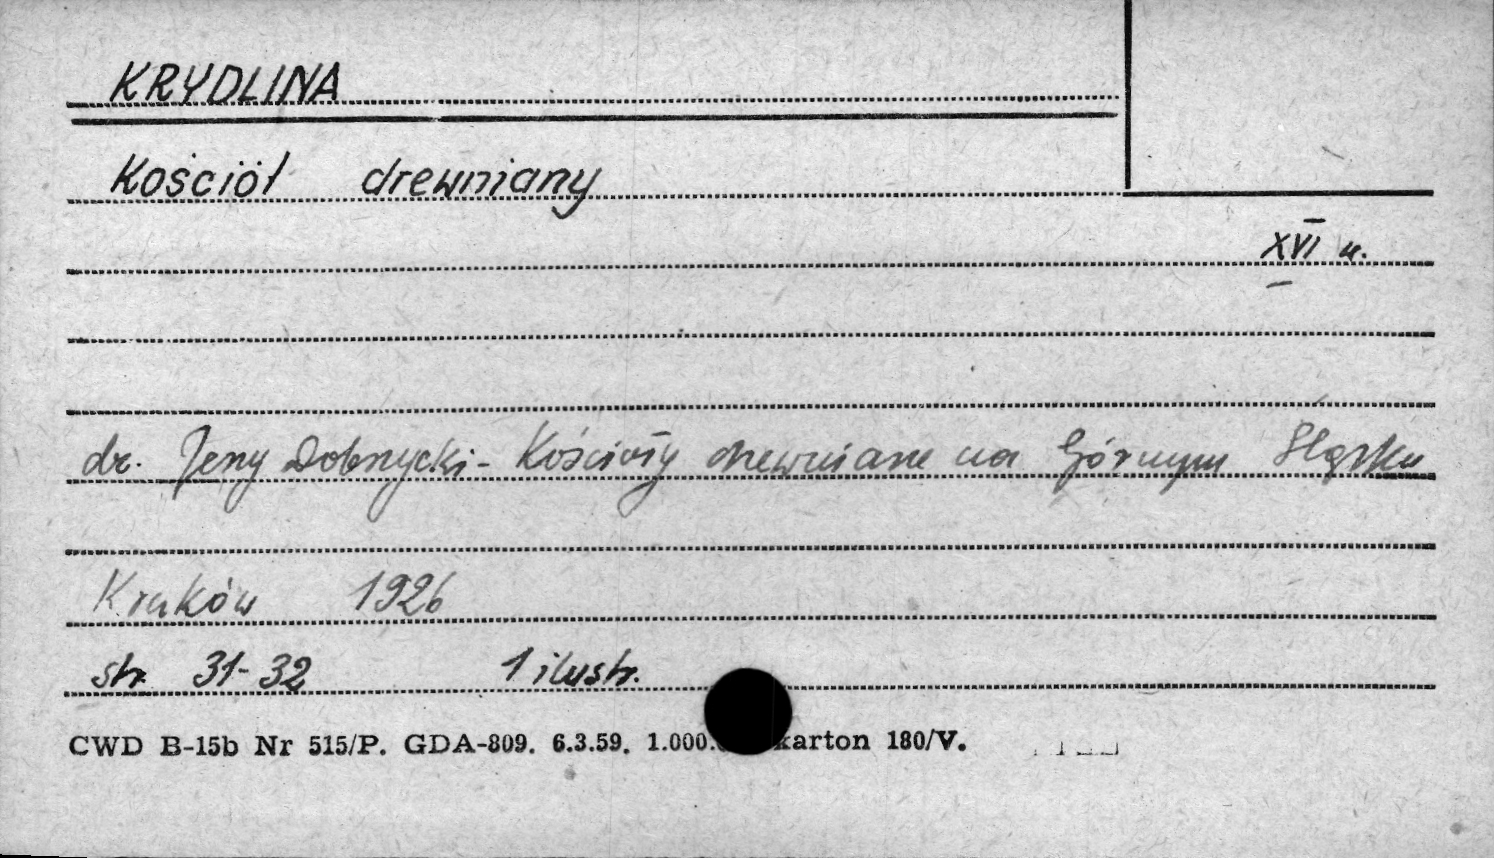 KRYDLINA
Kościół drewniany
XVI w.
dr. Jerzy Dobrzycki - Kościoły drewniane na Górnym Śląsku
Kraków 1926
str. 31-32 1 ilustr.
CWD B-15b Nr 515/P. GDA-809. 6.3.59. 1.000. karton 180/V.